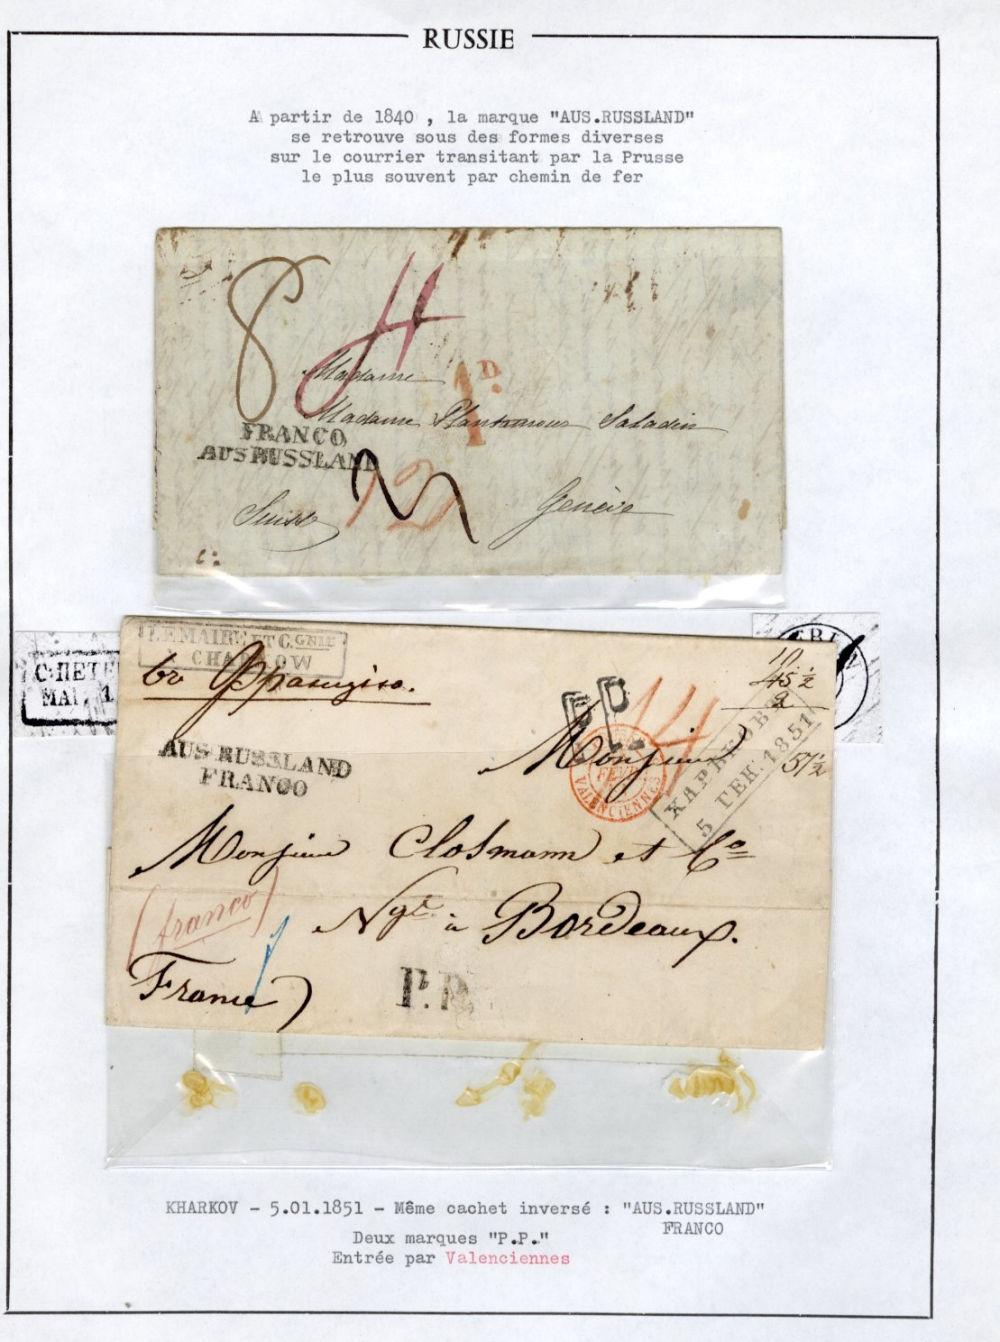 RUSSIE
A partir de 1840 , la marque "AUS.RUSSLAND"
se retrouve sous des formes diverses
sur le courrier transitant par la Prusse
le plus souvent par chemin de fer
8
Madame
1 D.
Madame Plantamour Saladin
FRANCO
AUS RUSSLAND
12
Suisse Genève
LEMAIRE ET C.GNIE
CHARKOW
С:ПЕТЕ
МАІ. 1
въ Францiю.
P.P.
14
45 ½
2
51½
ХАРЬКОВЪ
5 ГЕН: 1851
AUS RUSSLAND
FRANCO
Monsieur
FEVR
VALENCIENNES
Monsieur Closmann et Co
(franco)
Ngt. à Bordeaux.
France
P.P.
KHARKOV - 5.01.1851 - Même cachet inversé : "AUS.RUSSLAND"
FRANCO
Deux marques "P.P."
Entrée par Valenciennes